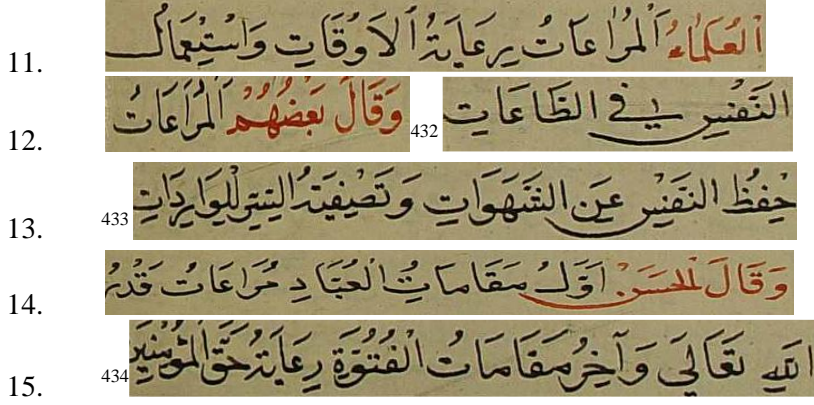 11. اَلعُلَمَاءُ اَلْمُرَاعَاتُ رِعَايَةُ اْلاَوْقَاتِ وَاسْتِعْمَالُ
12. النَّفْسِ فِي الطَّاعَاتِ 432 وَقَالَ بَعْضُهُمْ اَلْمُرَاعَاتُ
13. حِفْظُ النَّفْسِ عَنِ الشَّهَوَاتِ وَتَصْفِيَةُ السِّرِّ لِلْوَارِدَاتِ 433
14. وَقَالَ الْحَسَنُ اَوَّلُ مَقَامَاتِ الْعُبَّادِ مُرَاعَاتُ قَدْرِ
15. اللهِ تَعَالَى وَآخِرُ مَقَامَاتِ الْفُتُوَّةِ رِعَايَةُ حَقِّ الْمُؤْمِنِينَ 434